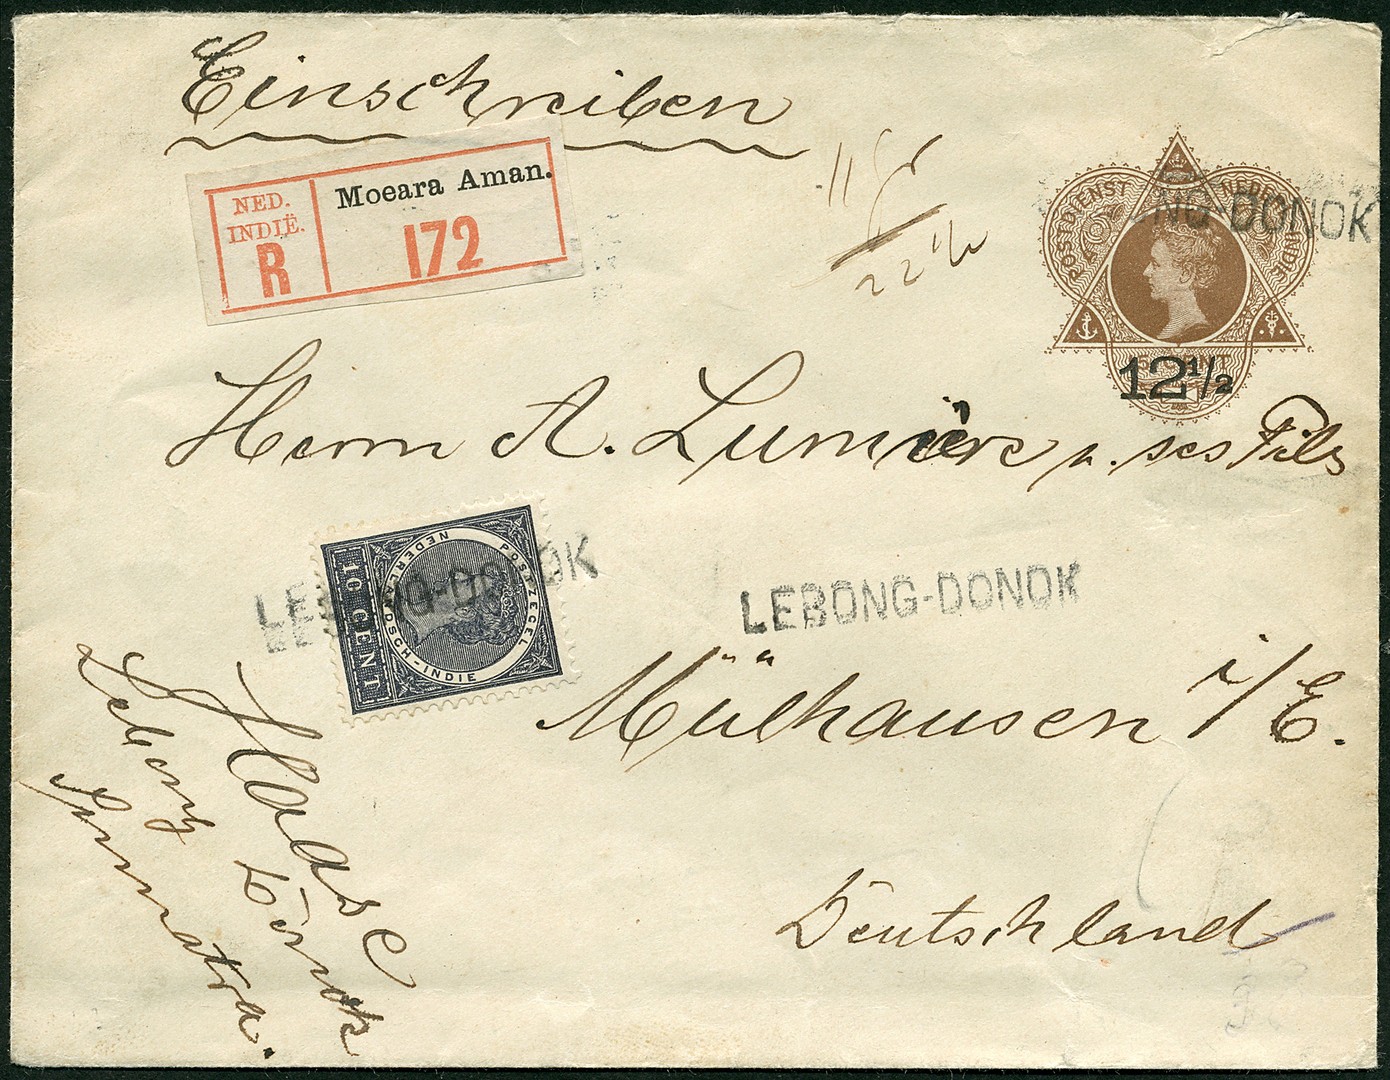 Einschreiben
NED.
INDIË.
R
Moeara Aman.
172
22 1/2
POSTDIENST NEDERL INDIE
NG-DONOK
CENT
12 1/2
Herrn A. Lumière u. ses Fils
LEBONG-DONOK
10 CENT
POSTZEGEL
NEDERLANDSCH-INDIE
LEBONG-DONOK
Mülhausen i/E.
Deutschland
Haase
Lebong Donok
Sumatra.